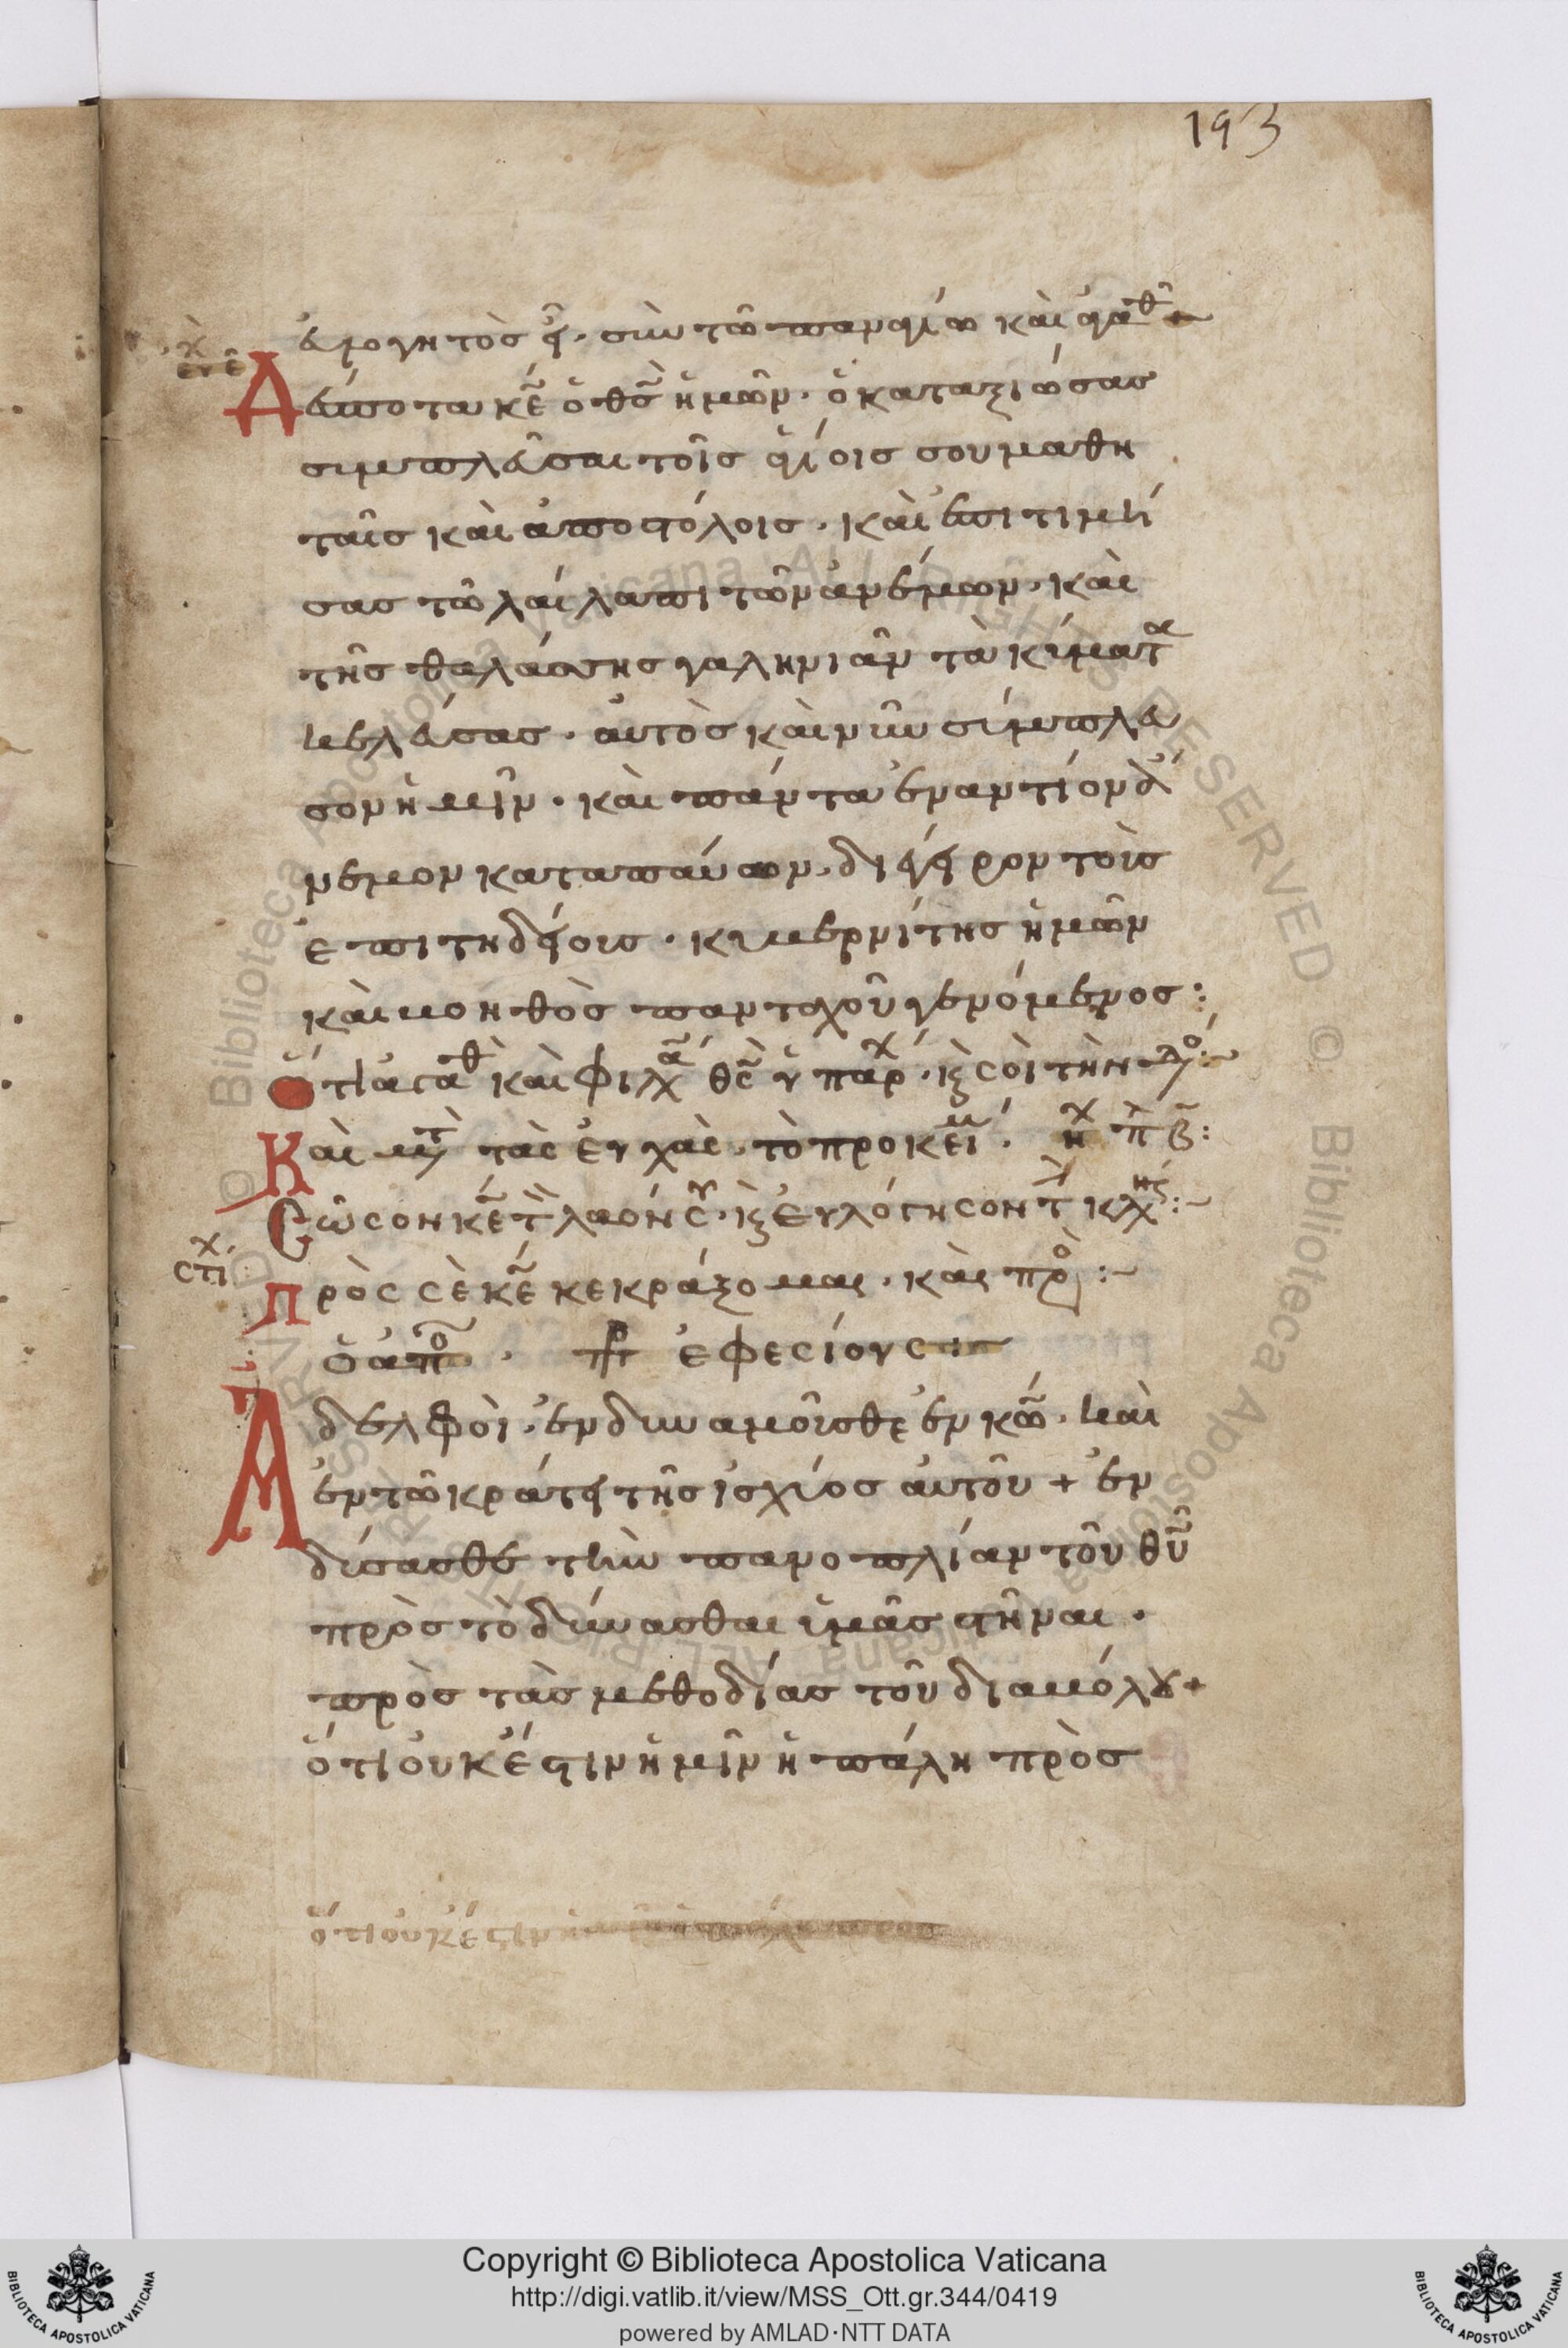 193
εὐλογητὸς εἶ· σὺν τῶ παναγίω καὶ ἀγαθ
εὐχ
Δέσποτα κε ὁ θς ἡμῶν· ὁ καταξιώσας
συμπλεῦσαι τοῖς ἁγίοις σου μαθη
ταῖς καὶ ἀποστόλοις· καὶ ἐπιτιμή
σας τῶ λαίλαπι τῶν ἀνέμων· καὶ
τῆς θαλάσσης γαληνιᾶν τὰ κύματα
κελεύσας· αὐτὸς καὶ νῦν σύμπλευ
σον ἡμῖν· καὶ πάντα ἐναντίον ἄ
νεμον καταπαύων·
ἐπιτηδείοις· κυβερνίτης ἡμῶν
καὶ βοηθὸς πανταχοῦ γενόμενος:
Ὅτι ἀγαθ καὶ φιλα θς ὑπάρχ· κ σοὶ τὴν δο:
Καὶ μετ τὰς εὐχὰς· τὸ προκείμ· ἦχ πλ β:
Σῶσον κε τ λαόν σου· κ εὐλόγησον τ κλη:
στιχ
Πρὸς σὲ κε κεκράξομαι· καὶ προ:
ὁ ἀπο· πρ ἐφεσίους
Ἀδελφοὶ· ἐνδυναμοῦσθε ἐν κω· καὶ
ἐν τῶ κράτει τῆς ἰσχύος αὐτοῦ + ἐν
δύσασθε τὴν πανοπλίαν τοῦ θυ
πρὸς τὸ δύνασθαι ὑμᾶς στῆναι·
πρὸς τὰς μεθοδίας τοῦ διαβόλου+
ὅτι οὐκ ἔστιν ἡμῖν ἡ πάλη πρὸς
ὅτι οὐκ ἔστιν ἡμῖν ἡ πάλη πρὸς
Copyright © Biblioteca Apostolica Vaticana
http://digi.vatlib.it/view/MSS_Ott.gr.344/0419
powered by AMLAD·NTT DATA
BIBLIOTECA APOSTOLICA VATICANA
BIBLIOTECA APOSTOLICA VATICANA